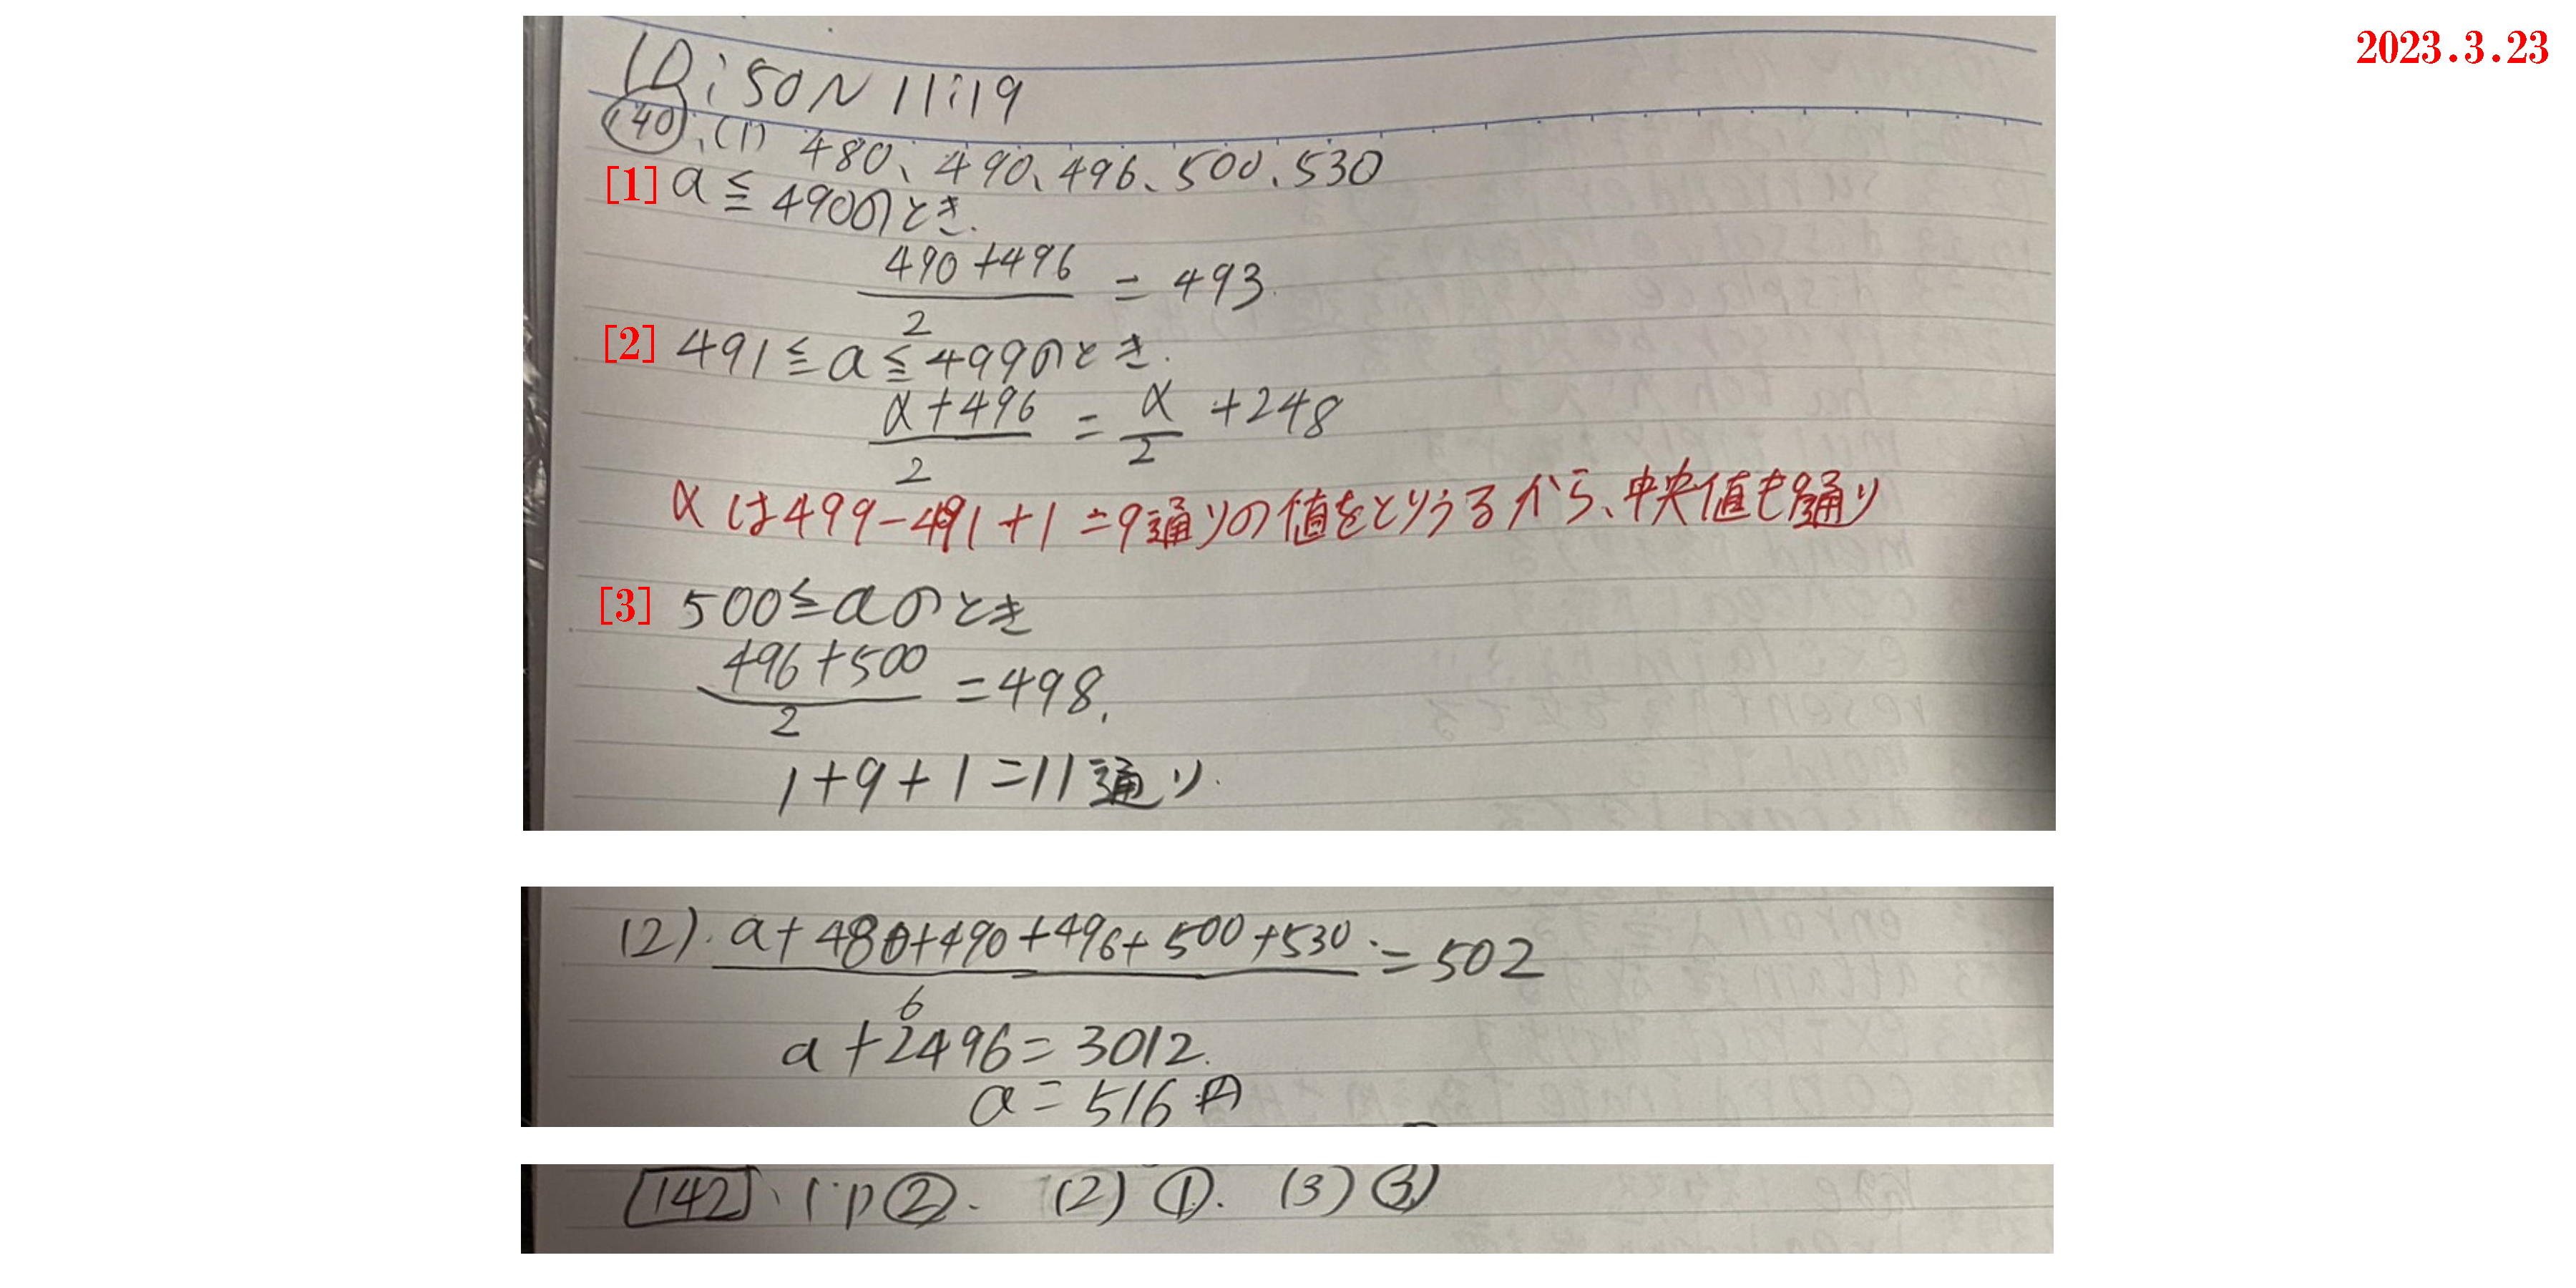 2023.3.23
10:50~11:19
140、(1) 480、490、496、500、530
[1] a≦490のとき.
490+496/2 = 493.
[2] 491≦a≦499のとき.
a+496/2 = a/2 +248
aは499-491+1=9通りの値をとりうるから、中央値も9通り
[3] 500≦aのとき
496+500/2 =498.
1+9+1=11通り.
(2). a+480+490+496+500+530/6 =502
a+2496=3012.
a=516円
142、(1)②. (2)①. (3)③